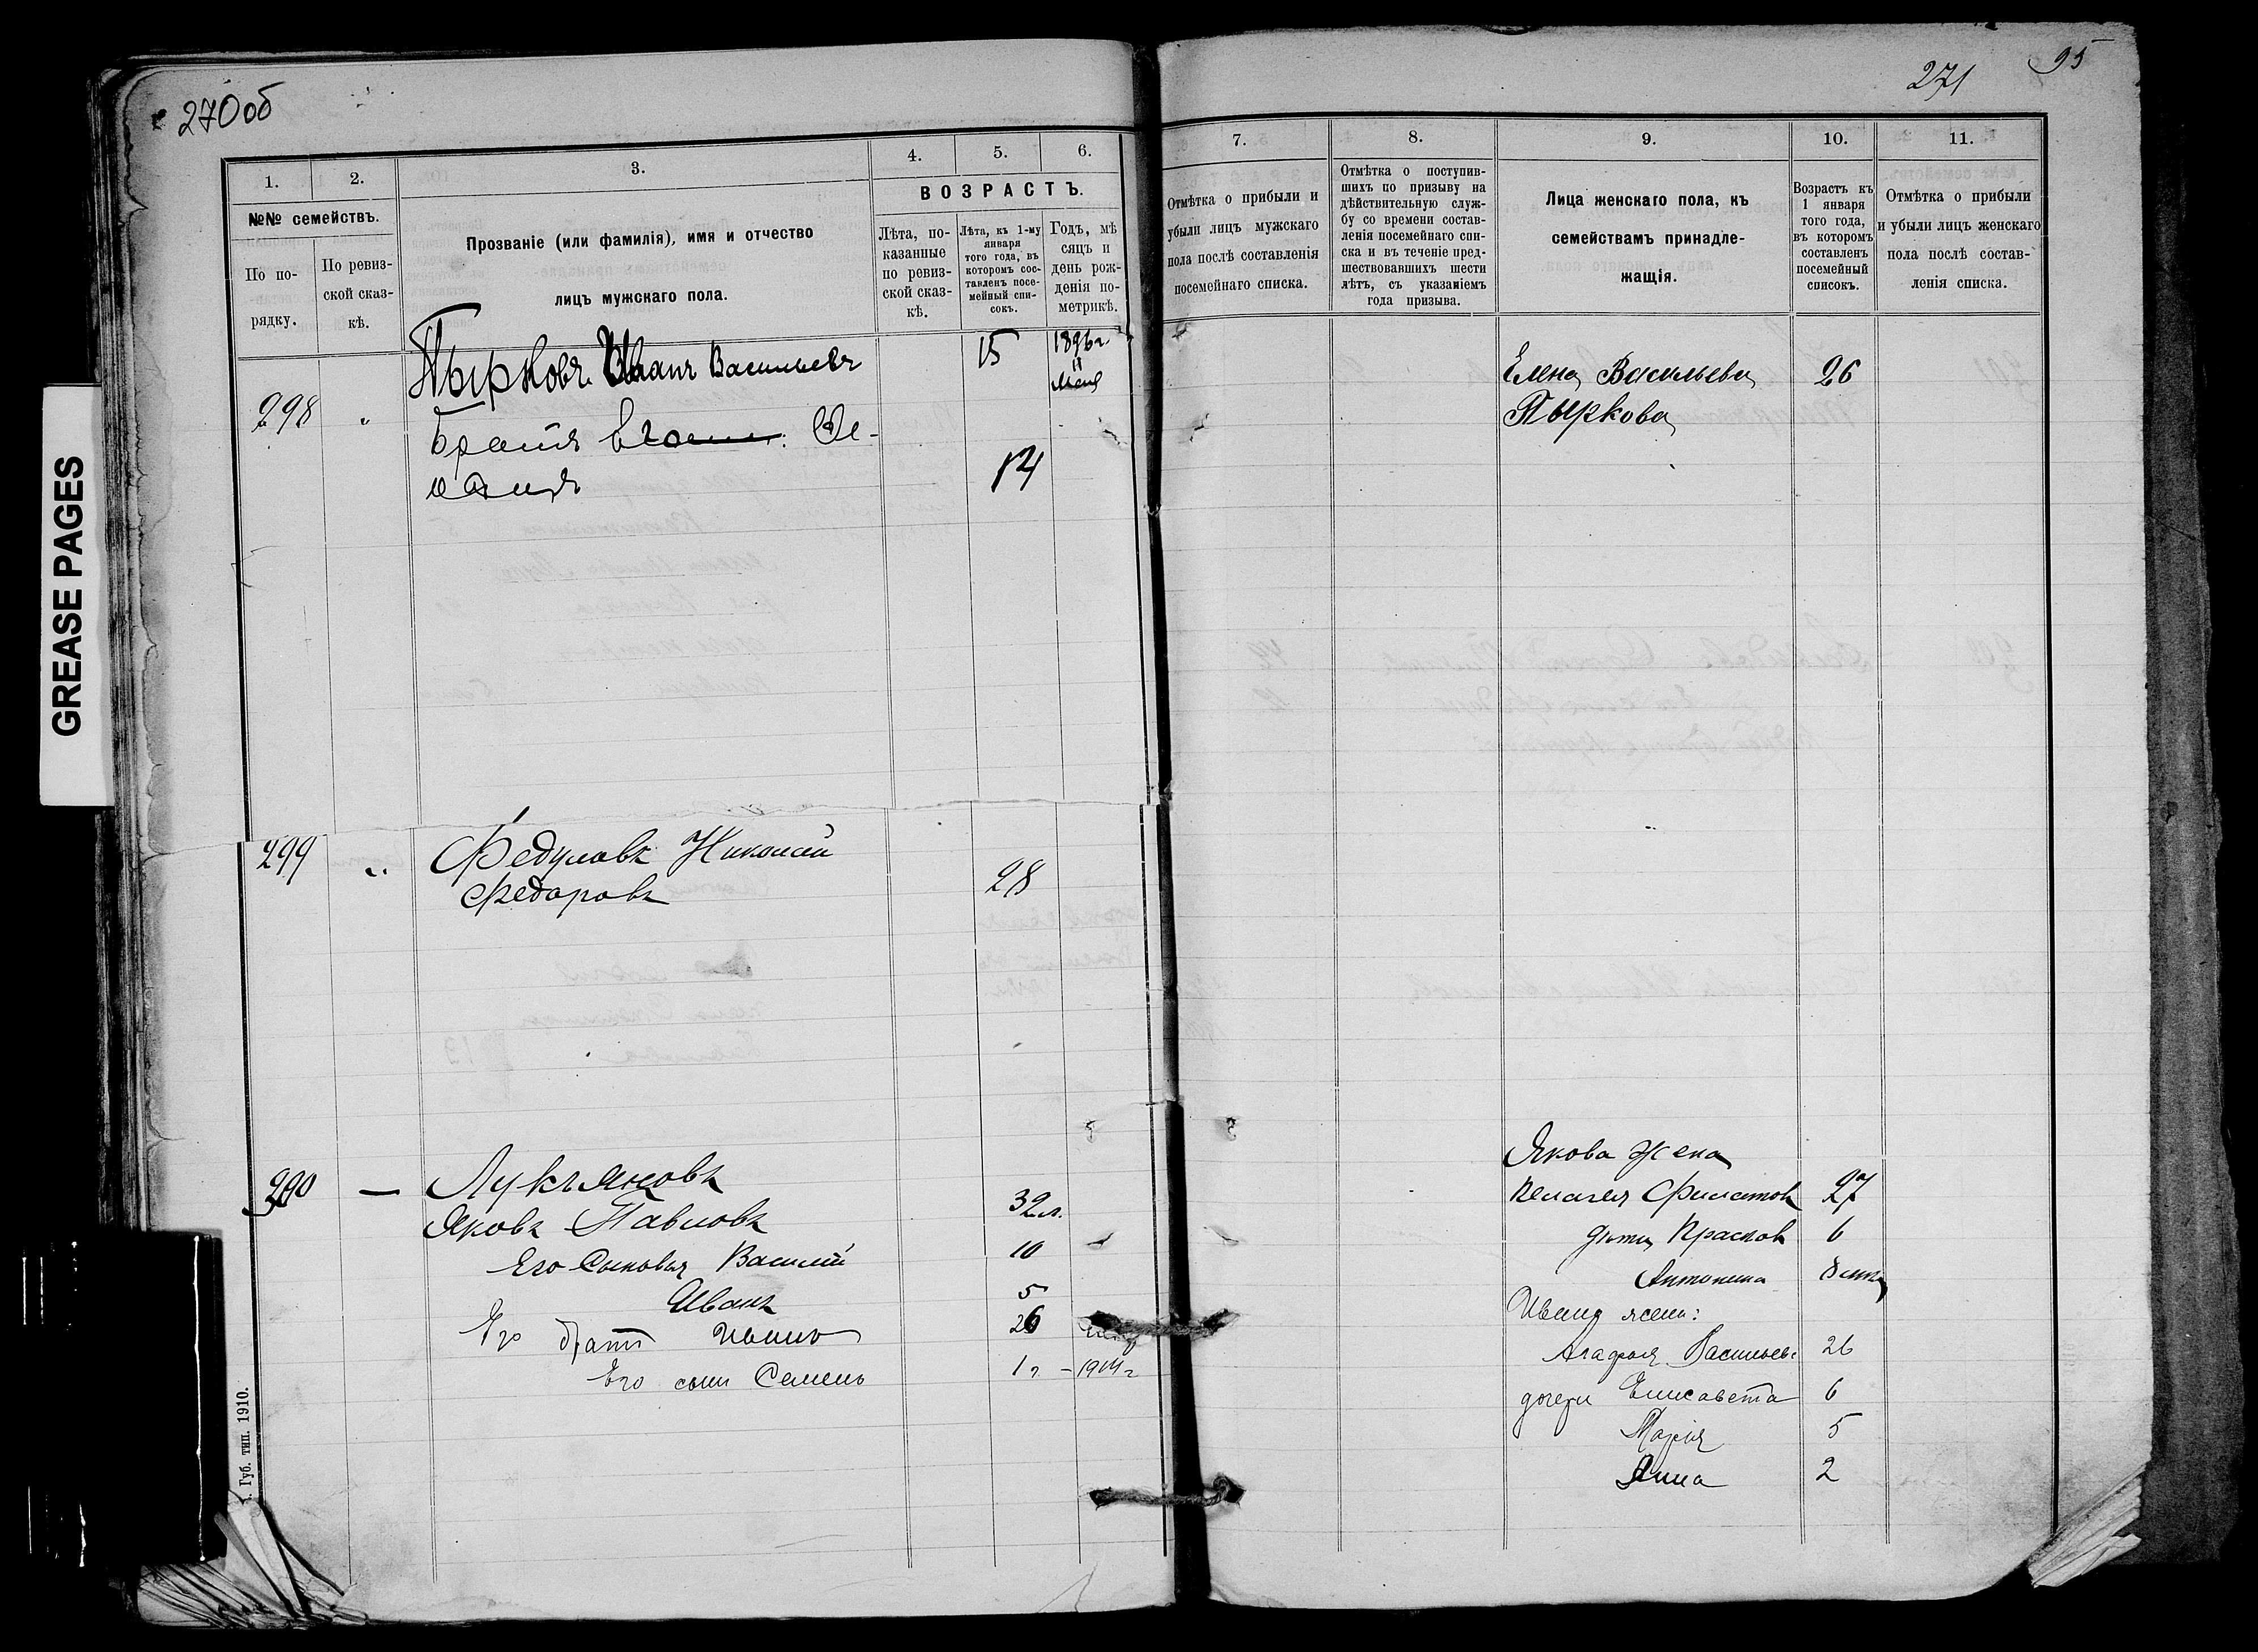 GREASE PAGES
270об
1.
2.
3.
4.
5.
6.
№№ семействъ.
По по-
рядку.
По ревиз-
ской сказ-
кѣ.
Прозваніе (или фамилія), имя и отчество
лицъ мужскаго пола.
ВОЗРАСТЪ.
Лѣта, по-
казанные
по ревиз-
ской сказ-
кѣ.
Лѣта, къ 1-му
января
того года, въ
которомъ сос-
тавленъ посе-
мейный спи-
сокъ.
Годъ, мѣ
сяцъ и
день рож-
денія по-
метрикѣ.
298
Пырковъ Иванъ Васильевъ 15 1896 г.
Братъ
14
299 Федуловъ Николай
Федоровъ 28
290 — Лукъяновъ
Яковъ Павловъ 32 л.
Его Сыновья Василій 10
Иванъ 5
Его братъ Иванъ 26
Его сынъ Семенъ 1 г. – 1914 г
. Губ. тип. 1910.
271 95
7.
8.
9.
10.
11.
Отмѣтка о прибыли и
убыли лицъ мужскаго
пола послѣ составленія
посемейнаго списка.
Отмѣтка о поступив-
шихъ по призыву на
дѣйствительную служ-
бу со времени состав-
ленія посемейнаго спи-
ска и въ теченіе пред-
шествовавшихъ шести
лѣтъ, съ указаніемъ
года призыва.
Лица женскаго пола, къ
семействамъ принадле-
жащія.
Возрастъ къ
1 января
того года,
въ которомъ
составленъ
посемейный
списокъ.
Отмѣтка о прибыли
и убыли лицъ женскаго
пола послѣ состав-
ленія списка.
Елена Васильева 26
Пыркова
Якова Жена
Пелагея Филатов 27
дѣти Прасков 6
Антонина
Ивана жена:
Агафья Васильев. 26
дочери Елисавета 6
Марія 5
Анна 2